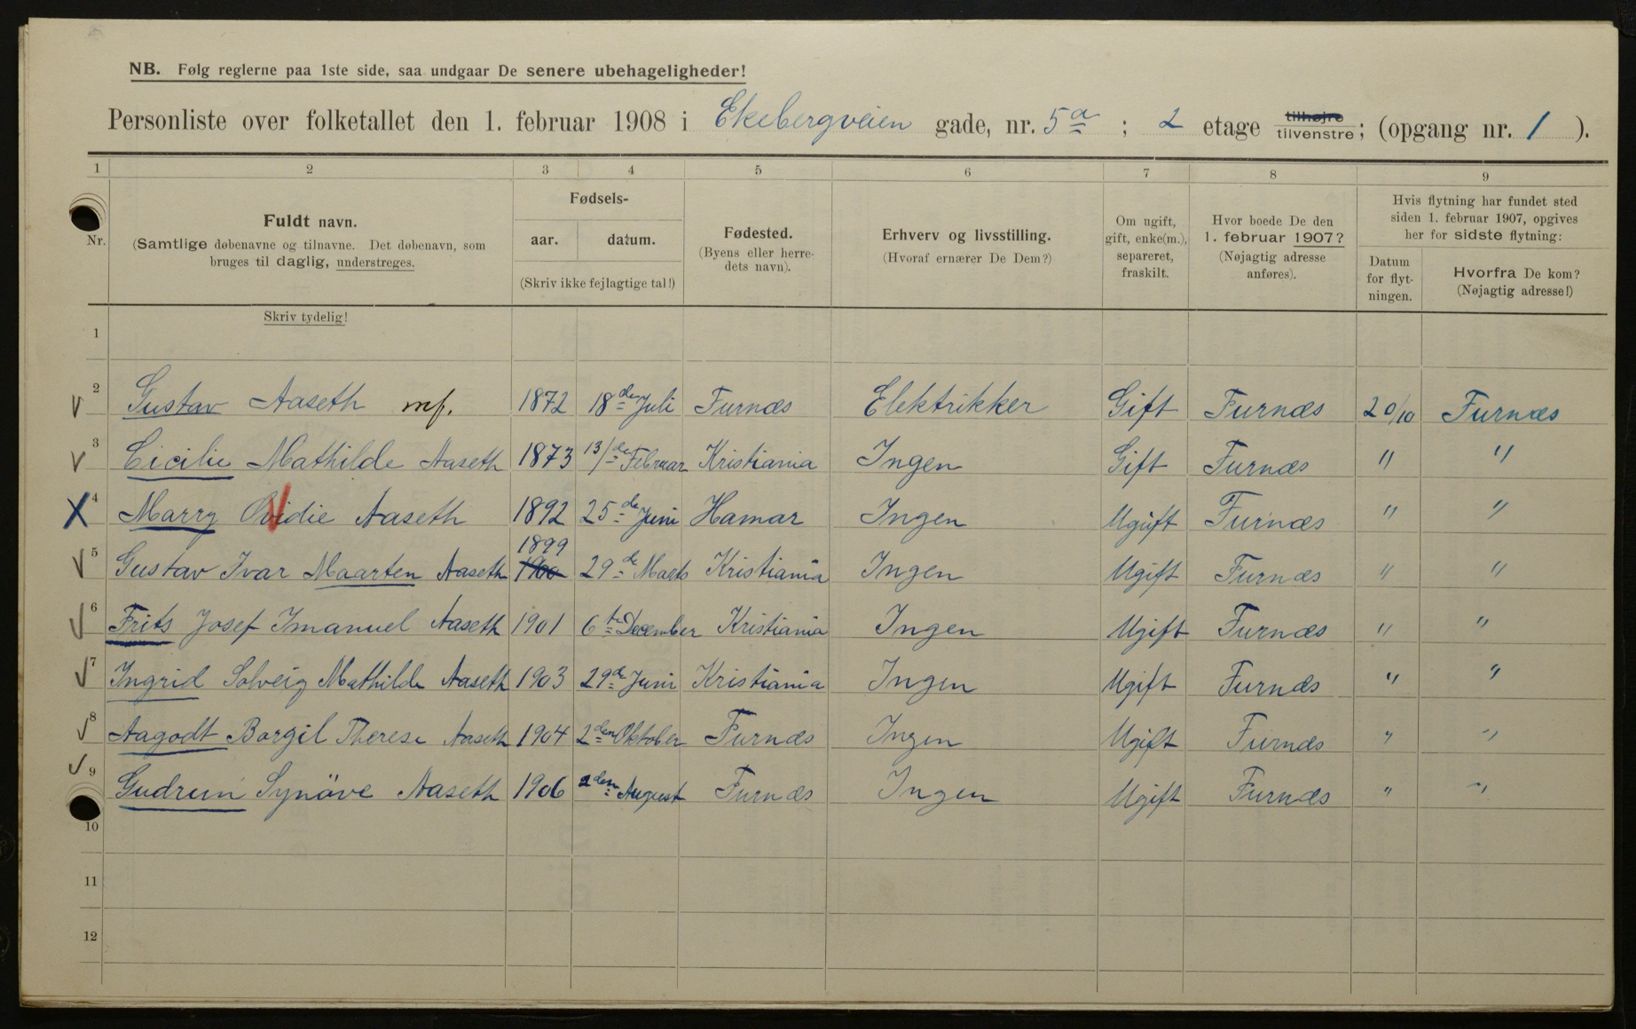 NB. Følg reglerne paa 1ste side, saa undgaar De senere ubehageligheder!
Personliste over folketallet den 1. februar 1908 i Ekebergveien gade, nr. 5a ; 2 etage tilhøjre tilvenstre; (opgang nr. 1 ).
1 2 3 4 5 6 7 8 9
Nr. Fuldt navn. (Samtlige døbenavne og tilnavne. Det døbenavn, som bruges til daglig, understreges.
Fødsels- aar. datum. (Skriv ikke fejlagtige tal!)
Fødested. (Byens eller herredets navn).
Erhverv og livsstilling. (Hvoraf ernærer De Dem?)
Om ugift, gift, enke(m.), separeret, fraskilt.
Hvor boede De den 1. februar 1907? (Nøjagtig adresse anføres).
Hvis flytning har fundet sted siden 1. februar 1907, opgives her for sidste flytning:
Datum for flytningen. Hvorfra De kom? (Nøjagtig adresse!)
Skriv tydelig!
1
2 Gustav Aaseth mf. 1872 18de Juli Furnæs Elektrikker Gift Furnæs 20/10 Furnæs
3 Cicilie Mathilde Aaseth 1873 13/de Februar Kristiania Ingen Gift Furnæs " "
4 Marry Ovidie Aaseth 1892 25de Juni Hamar Ingen Ugift Furnæs " "
1899
5 Gustav Ivar Maarten Aaseth 1900 29de Marts Kristiania Ingen Ugift Furnæs " "
6 Frits Josef Imanuel Aaseth 1901 6te December Kristiania Ingen Ugift Furnæs " "
7 Ingrid Solveig Mathilde Aaseth 1903 29de Juni Kristiania Ingen Ugift Furnæs " "
8 Aagodt Borgil Therese Aaseth 1904 2den Oktober Furnæs Ingen Ugift Furnæs " "
9 Gudrun Synöve Aaseth 1906 2den August Furnæs Ingen Ugift Furnæs " "
10
11
12